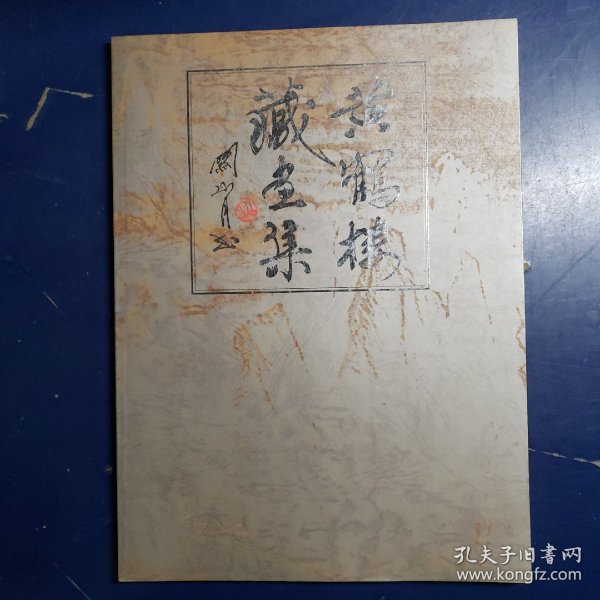 黄鹤楼
藏画集
關山月书
孔夫子旧书网
www.kongfz.com